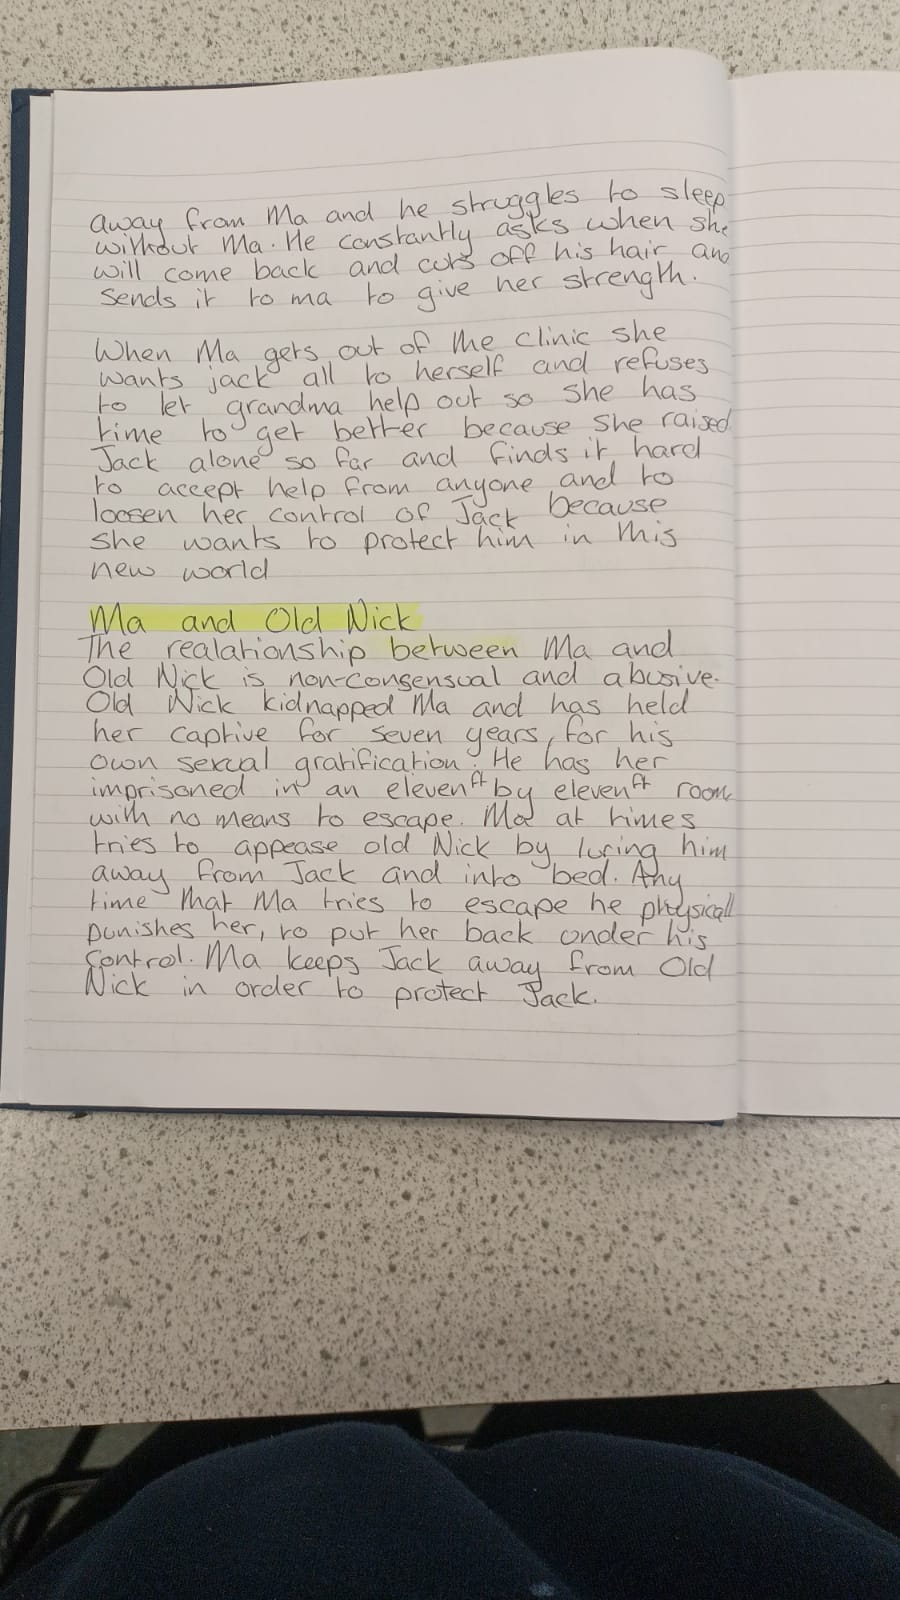 away from Ma and he struggles to sleep
without Ma. He constantly asks when she
will come back and cuts off his hair and
sends it to ma to give her strength.
When Ma gets out of the clinic she
wants jack all to herself and refuses
to let grandma help out so she has
time to get better because she raised
Jack alone so far and finds it hard
to accept help from anyone and to
loosen her control of Jack because
she wants to protect him in this
new world
Ma and Old Nick
The realationship between Ma and
Old Nick is non-consensual and abusive.
Old Nick kidnapped Ma and has held
her captive for seven years, for his
own sexual gratification. He has her
imprisoned in an eleven ft by eleven ft room
with no means to escape. Ma at times
tries to appease old Nick by luring him
away from Jack and into bed. Any
time that Ma tries to escape he physicall
punishes her, to put her back under his
control. Ma keeps Jack away from Old
Nick in order to protect Jack.